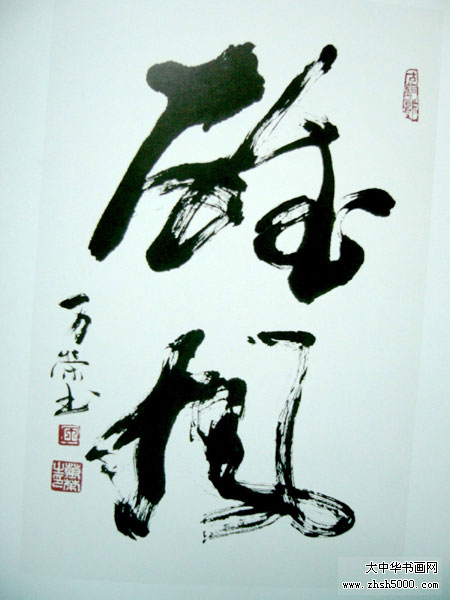 雄风
万荣书
大中华书画网
www.zhsh5000.com